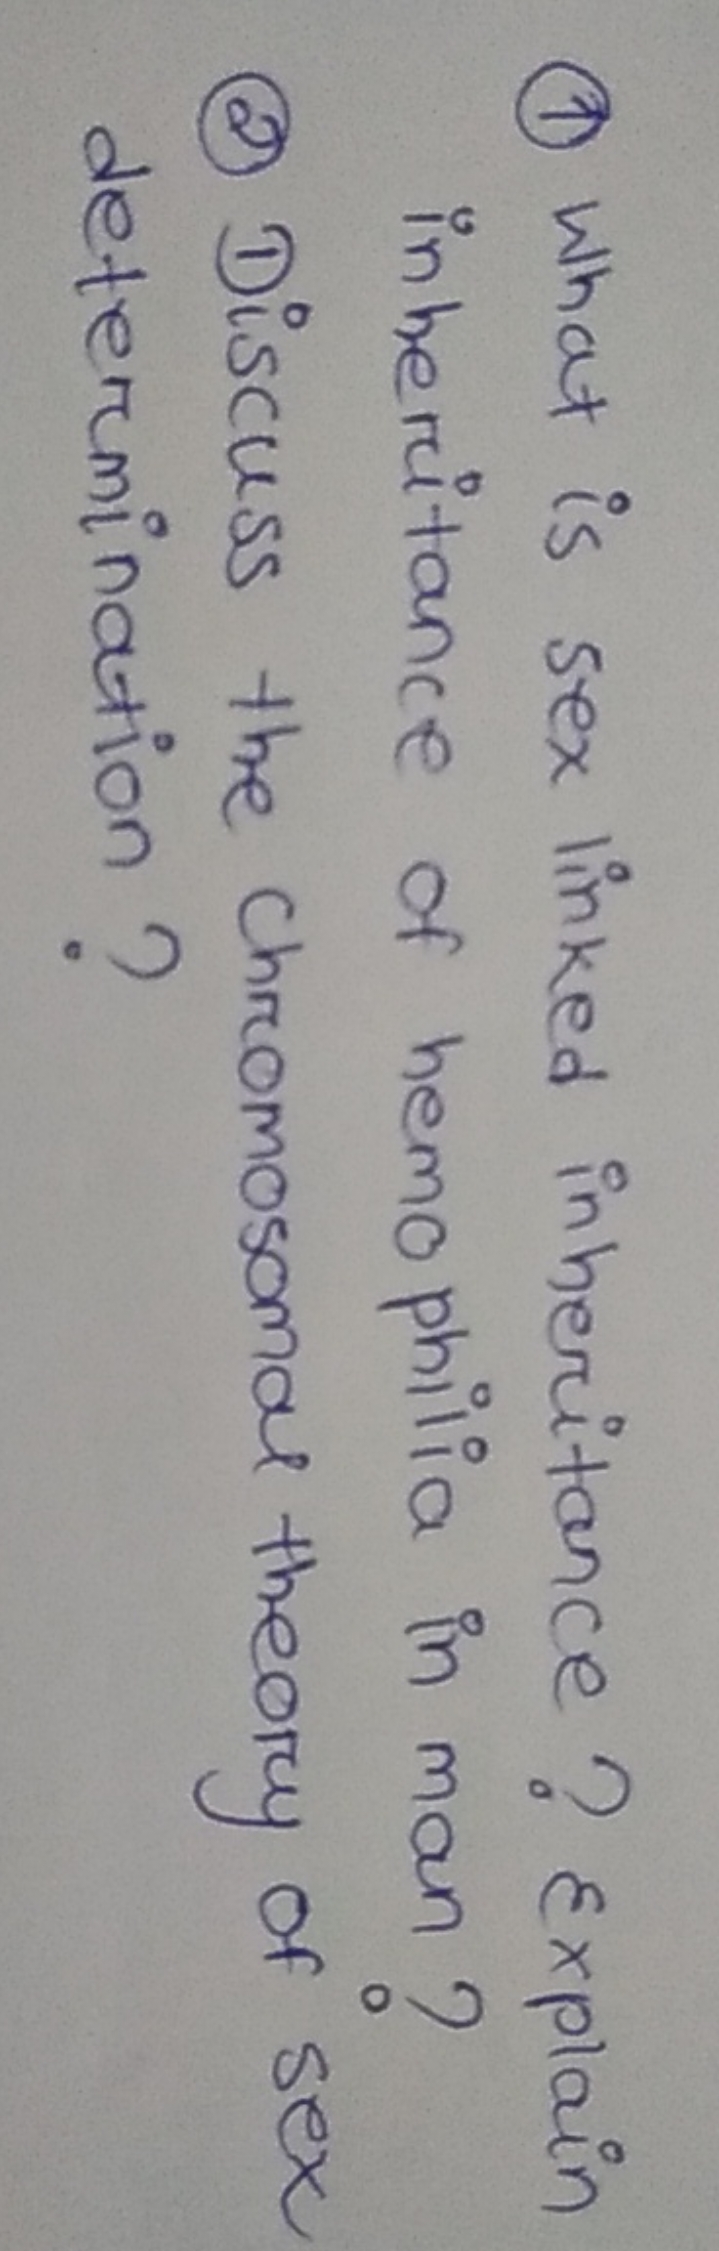 ① What is sex linked inheritance ? Explain
inheritance of hemophilia in man ?
② Discuss the chromosomal theory of sex
determination ?